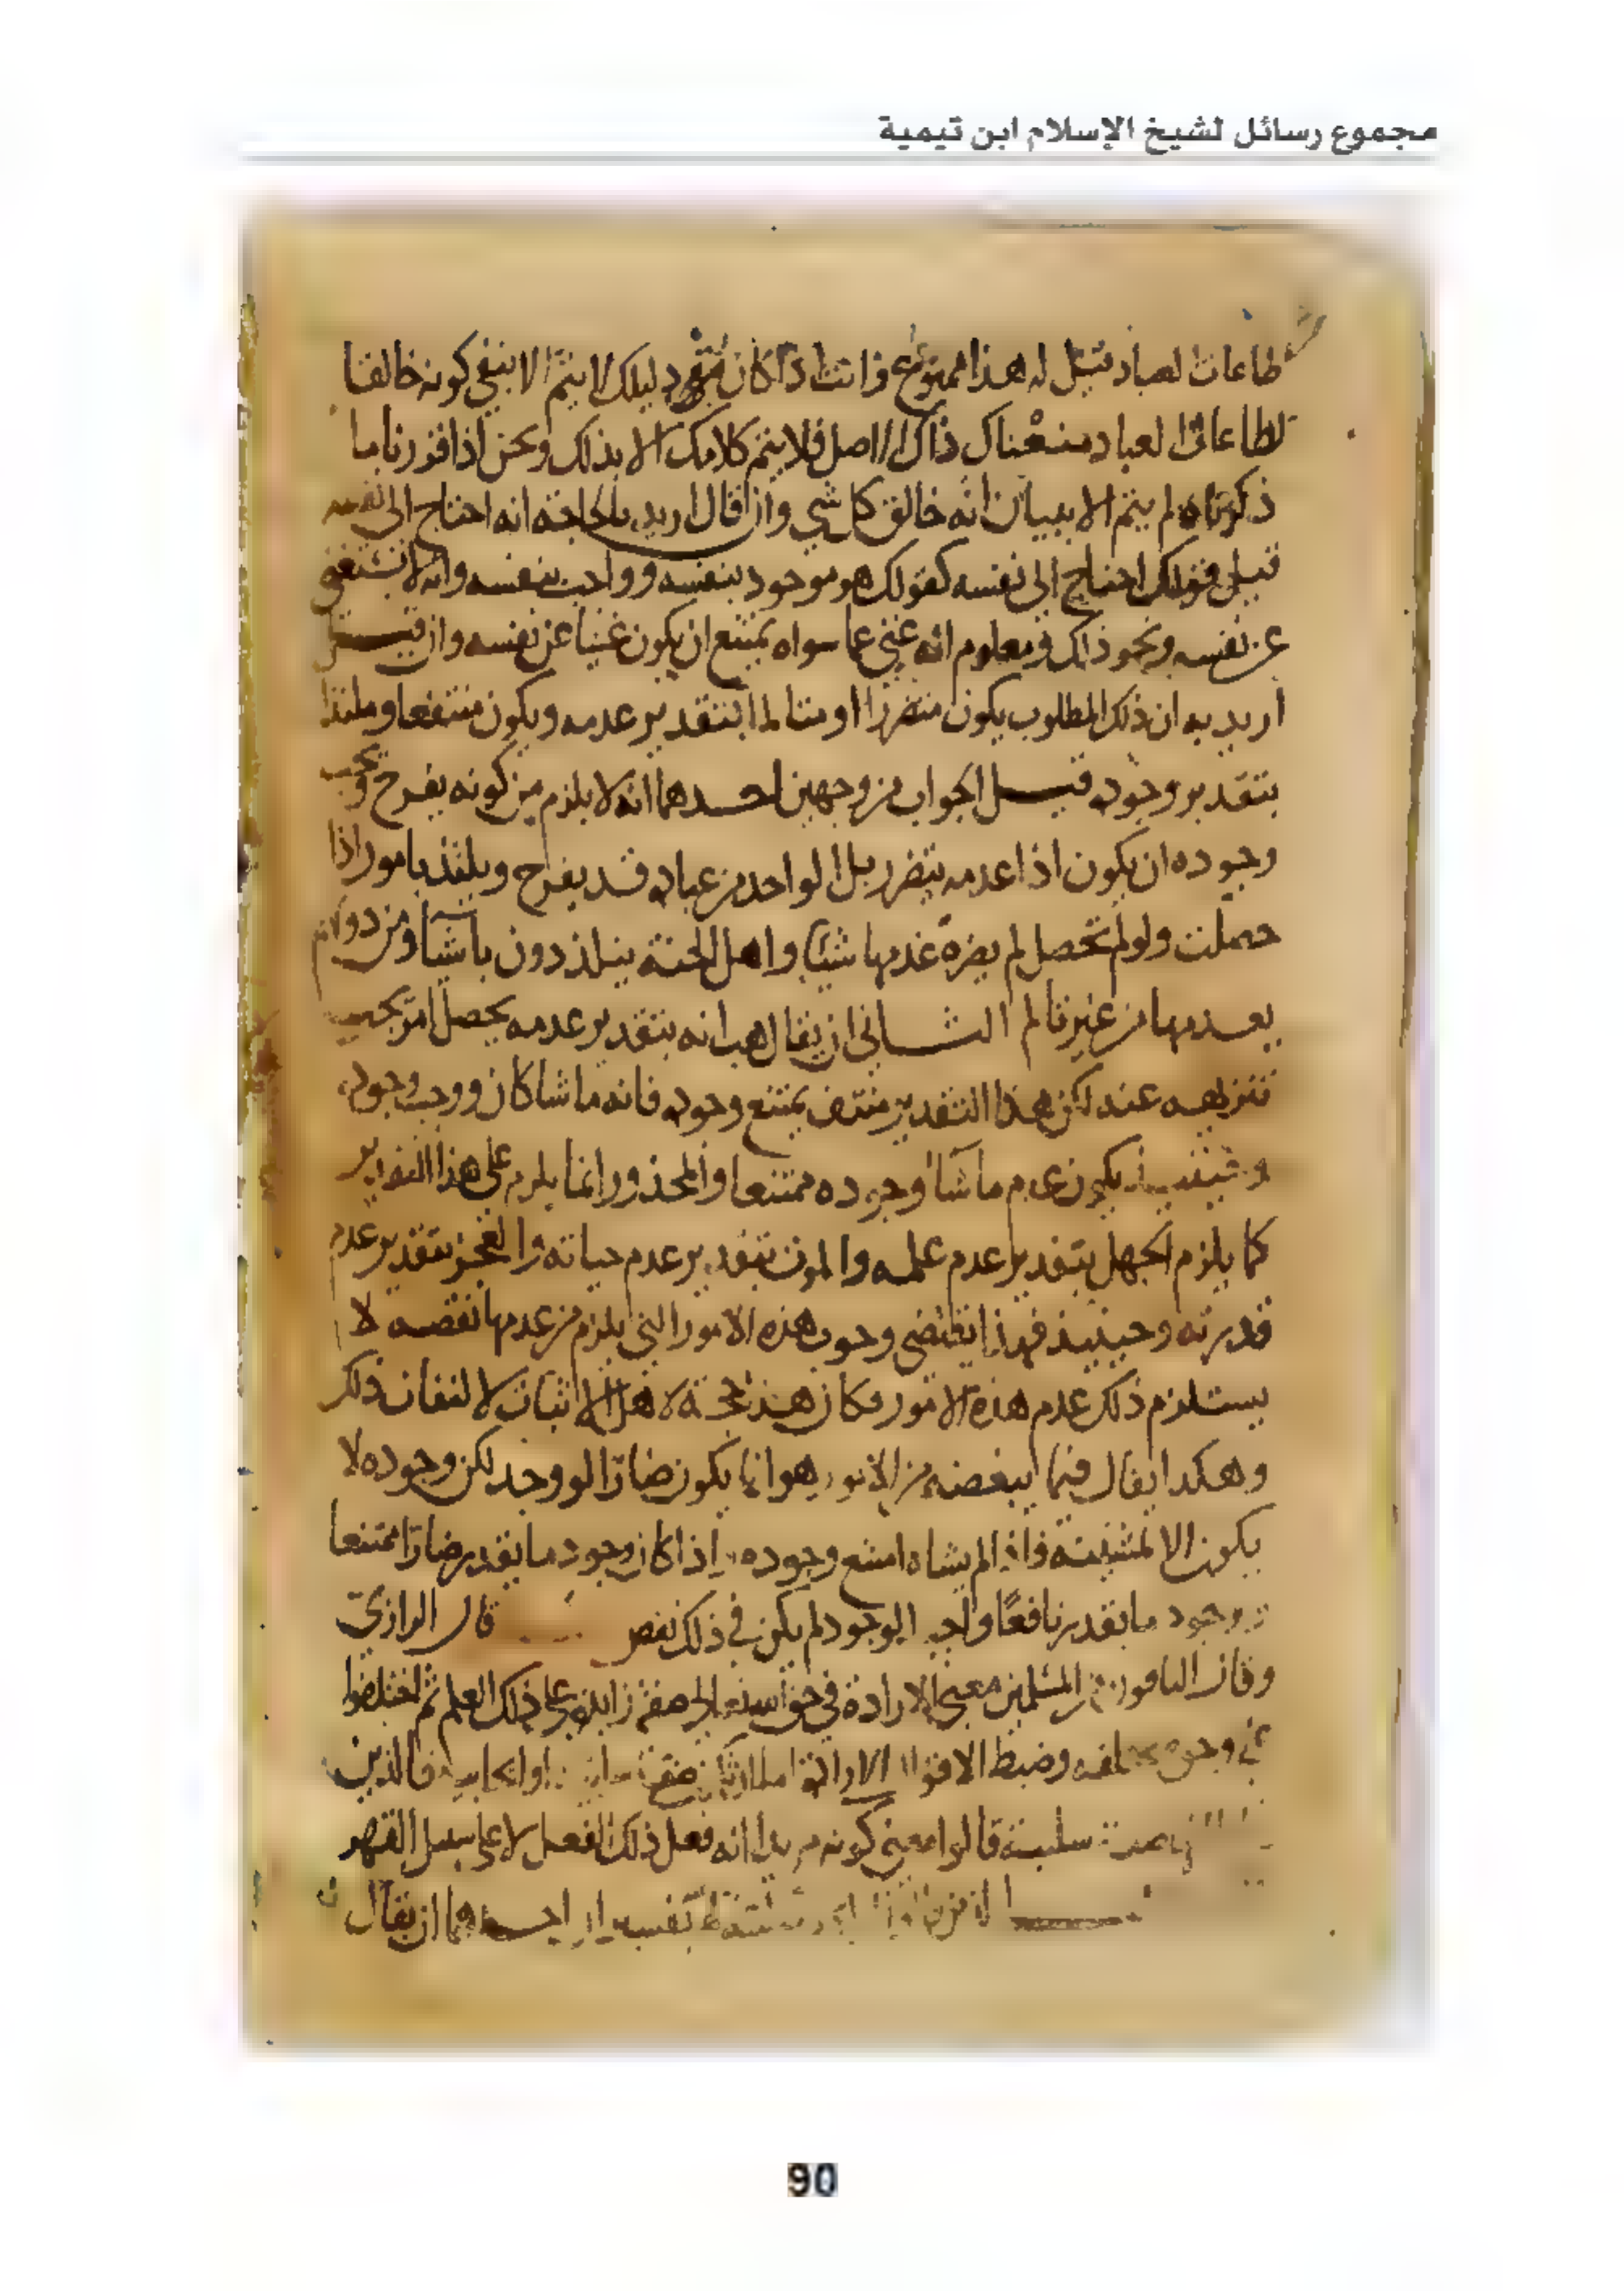 مجموع رسائل لشيخ الإسلام ابن تيمية
طاعات العباد قيل له هذا ممنوع وانت اذا كان دليلك لا يتم الا بنفي كونه خالقا
لطاعات العباد منعناك ذاك الاصل فلا يتم كلامك الا بذلك ونحن اذا قررنا ما
ذكرناه لم يتم الا ببيان انه خالق كل شي وان قال اريد بالحاجة انه احتاج الى نفسه
قيل قولك احتاج الى نفسه كقولك هو موجود بنفسه وواجب بنفسه وانه لا يستغني
عن نفسه ونحو ذلك ومعلوم انه غني عما سواه يمتنع ان يكون غنيا عن نفسه وان قيل
اريد به ان ذلك المطلوب يكون متضررا او متالما بتقدير عدمه ويكون منتفعا وملتذا
بتقدير وجوده قيل الجواب من وجهين احدهما انه لا يلزم من كونه يفرح ويحب
وجوده ان يكون اذا عدمه يتضرر بل الواحد من عباده قد يفرح ويلتذ بامور اذا
حصلت ولو لم تحصل لم يضره عدمها شيا واهل الجنة يتلذذون باشيا ومن دوام
بعدمها من غير تالم الثاني ان يقال هب انه بتقدير عدمه يحصل امر يجب
تنزيهه عنه لكن هذا التقدير منتف يمتنع وجوده فانه ما شا كان ووجب وجوده
وحينيذ يكون عدم ما شا وجوده ممتنعا والمحذور انما يلزم على هذا التقدير
كما يلزم الجهل بتقدير عدم علمه والموت بتقدير عدم حياته والعجز بتقدير عدم
قدرته وحينيذ فهذا يقتضي وجوب هذه الامور التي يلزم من عدمها نقصه لا
يستلزم ذلك عدم هذه الامور وكان هذا حجة لاهل الاثبات لا لنفاة ذلك
وهكذا يقال فيما يبغضه من الامور هو انما يكون ضارا لو وجد لكن وجوده لا
يكون الا بمشيئته فاذا لم يشاه امتنع وجوده اذا كان وجود ما يقدر ضارا ممتنعا
ووجود ما يقدر نافعا واجب الوجود لم يكن في ذلك نقص قال الرازي
وقال الباقون من المسلمين معنى الارادة في حق الله الى صفة زايدة على ذلك العلم ثم اختلفوا
في وجوه وضبط الاقوال الارادة اما ان تكون صفة سلبية او ايجابية فالذين
سلبية قالوا معنى كونه مريدا انه فعل ذلك الفعل لا على سبيل القهر
احدهما ان يقال
90